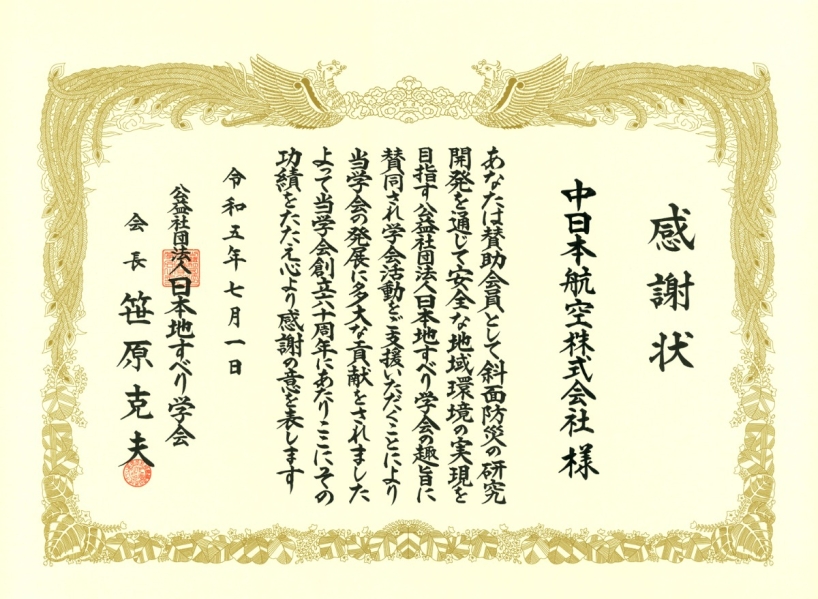 感謝状
中日本航空株式会社様
あなたは賛助会員として斜面防災の研究
開発を通じて安全な地域環境の実現を
目指す公益社団法人日本地すべり学会の趣旨に
賛同され学会活動をご支援いただくことにより
当学会の発展に多大な貢献をされました
よって当学会創立六十周年にあたりここにその
功績をたたえ心より感謝の意を表します
令和五年七月一日
公益社団法人日本地すべり学会
会長 笹原克夫